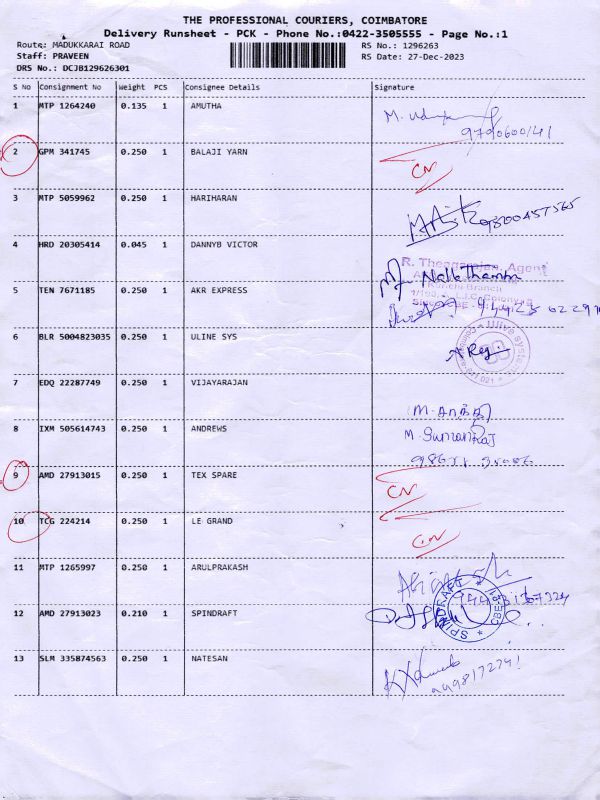 THE PROFESSIONAL COURIERS, COIMBATORE
Delivery Runsheet - PCK - Phone No.:0422-3505555 - Page No.:1
Route: MADUKKARAI ROAD RS No.: 1296263
Staff: PRAVEEN RS Date: 27-Dec-2023
DRS No.: DCJB129626301
S No Consignment No Weight PCS Consignee Details Signature
1 MTP 1264240 0.135 1 AMUTHA
2 GPM 341745 0.250 1 BALAJI YARN CN
3 MTP 5059962 0.250 1 HARIHARAN
4 HRD 20305414 0.045 1 DANNYB VICTOR
R. Theagarajan, Agent
5 TEN 7671185 0.250 1 AKR EXPRESS
6 BLR 5004823035 0.250 1 ULINE SYS
7 EDQ 22287749 0.250 1 VIJAYARAJAN
8 IXM 505614743 0.250 1 ANDREWS M. Sumanraj
9 AMD 27913015 0.250 1 TEX SPARE CN
10 TCG 224214 0.250 1 LE GRAND CN
11 MTP 1265997 0.250 1 ARULPRAKASH
12 AMD 27913023 0.210 1 SPINDRAFT SPINDRAFT
13 SLM 335874563 0.250 1 NATESAN